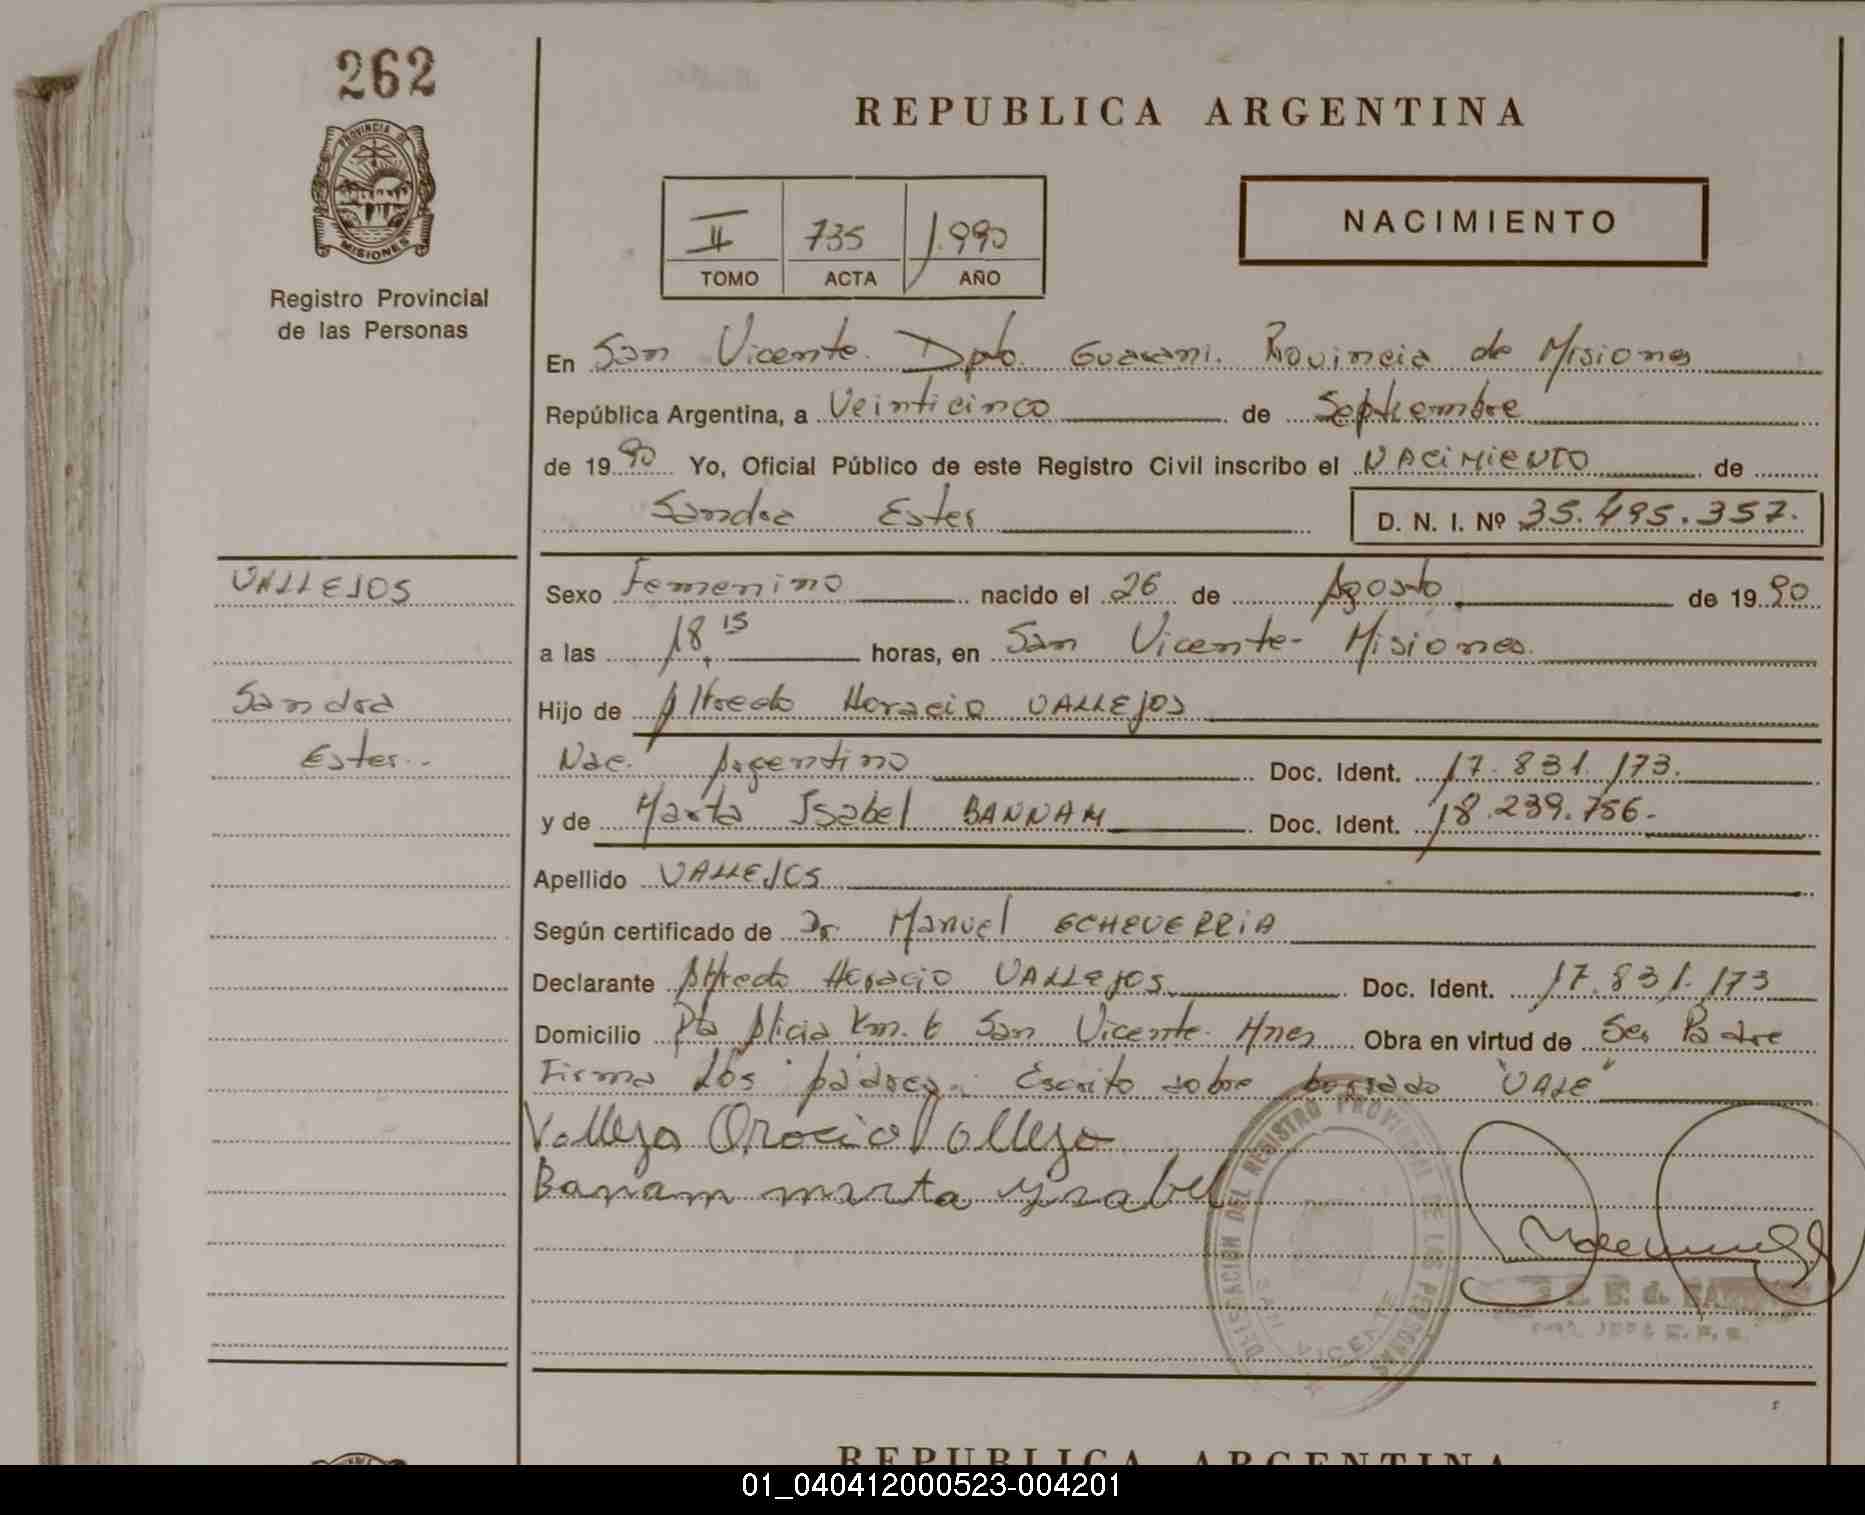 262
PROVINCIA DE
MISIONES
Registro Provincial
de las Personas
REPUBLICA ARGENTINA
II 735 1.990
TOMO ACTA AÑO
NACIMIENTO
En San Vicente. Dpto. Guarani. Provincia de Misiones
República Argentina, a Veinticinco de Septiembre
de 1990 Yo, Oficial Público de este Registro Civil inscribo el NACIMIENTO de
Sandra Ester D. N. I. Nº 35.495.357.
VALLEJOS
Sandra
Ester..
Sexo Femenino nacido el 26 de Agosto de 1990
a las 18.15 horas, en San Vicente- Misiones.
Hijo de Alfredo Horacio VALLEJOS
Nac. Argentino Doc. Ident. 17.831.173.
y de Marta Isabel BANNAM Doc. Ident. 18.239.756.
Apellido VALLEJOS
Según certificado de Dr. Manuel ECHEVERRIA
Declarante Alfredo Horacio VALLEJOS Doc. Ident. 17.831.173
Domicilio Pto Alicia Km. 6 San Vicente- Mnes Obra en virtud de Ser Padre
Firma los padres. Escrito sobre borrado "VALE"
Vallejo Oracio Vallejo
Banam marta ysabel
DELEGACION DEL REGISTRO PROVINCIAL DE LAS PERSONAS
SAN VICENTE
REPUBLICA ARGENTINA
01_040412000523-004201